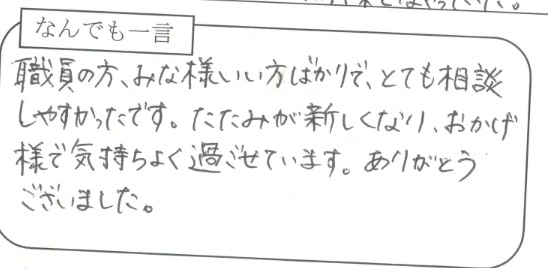 なんでも一言
職員の方、みな様いい方ばかりで、とても相談
しやすかったです。たたみが新しくなり、おかげ
様で気持ちよく過ごせています。ありがとう
ございました。